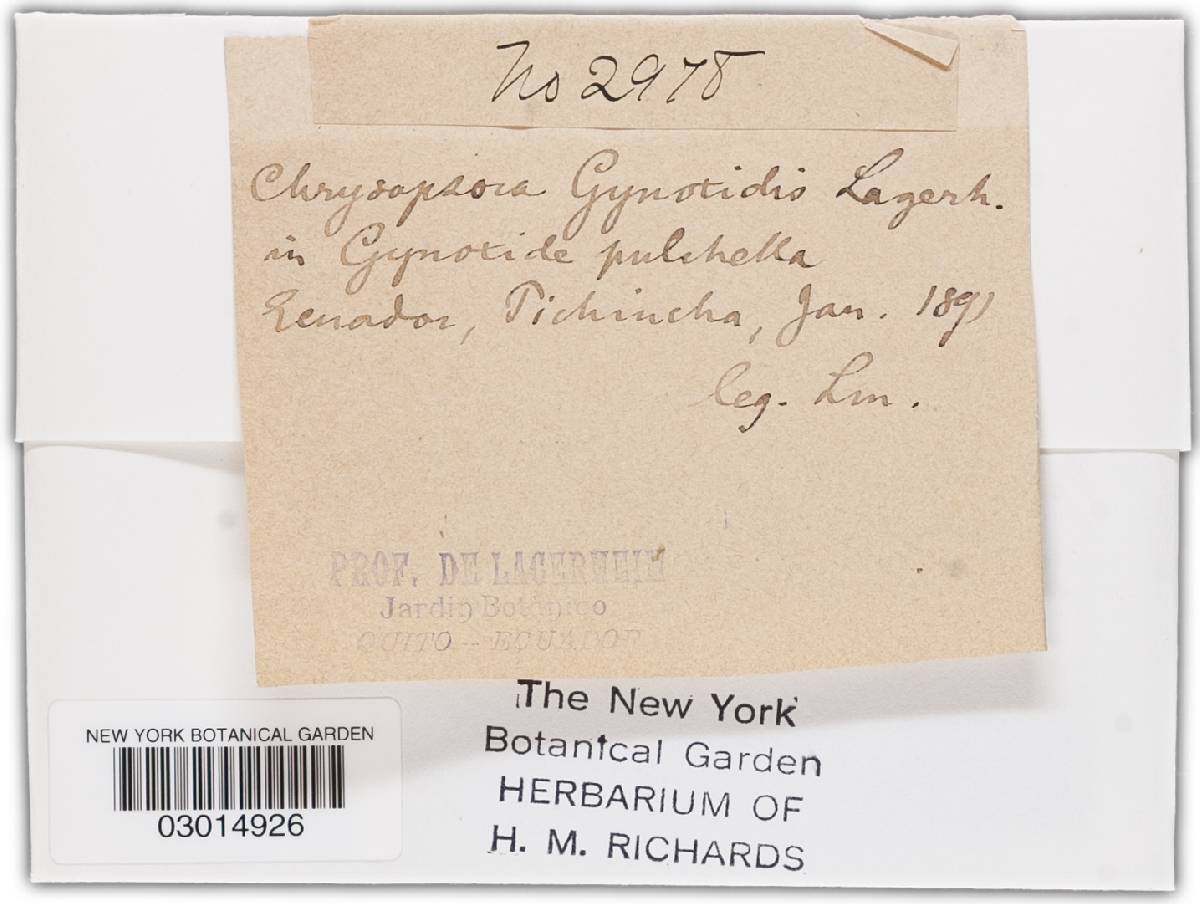 No 2978
Chrysopsora Gynoxidis Lagerh.
in Gynoxide pulchella
Ecuador, Pichincha, Jan. 1891
leg. Lm.
PROF. DE LAGERHEIM
Jardin Botánico
QUITO – ECUADOR
The New York
Botanical Garden
HERBARIUM OF
H. M. RICHARDS
NEW YORK BOTANICAL GARDEN
03014926